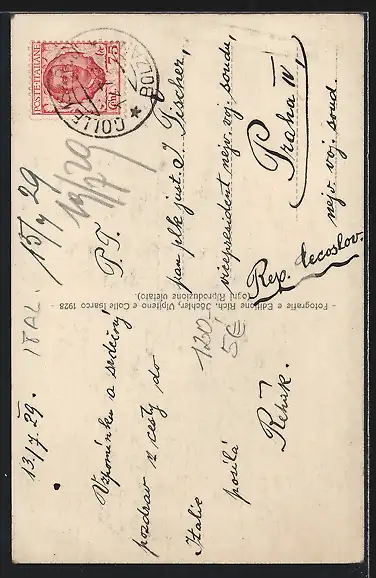 13./7. 29.
Vzpomínku a srdečný
pozdrav z cesty do
Italie
posílá
Řehák.
- Fotografie e Edizione Rich. Jöchler, Vipiteno e Colle Isarco 1928 -
(ogni Riproduzione vietato).
POSTE ITALIANE
75
COLLE
BOLZANO
P. T.
pan plk. just. J. Fischer,
vicepresident nejv. voj. soudu,
Praha IV,
nejv. voj. soud.
Rep. Čecoslov.
ITAL.
15/7 29
120
5€